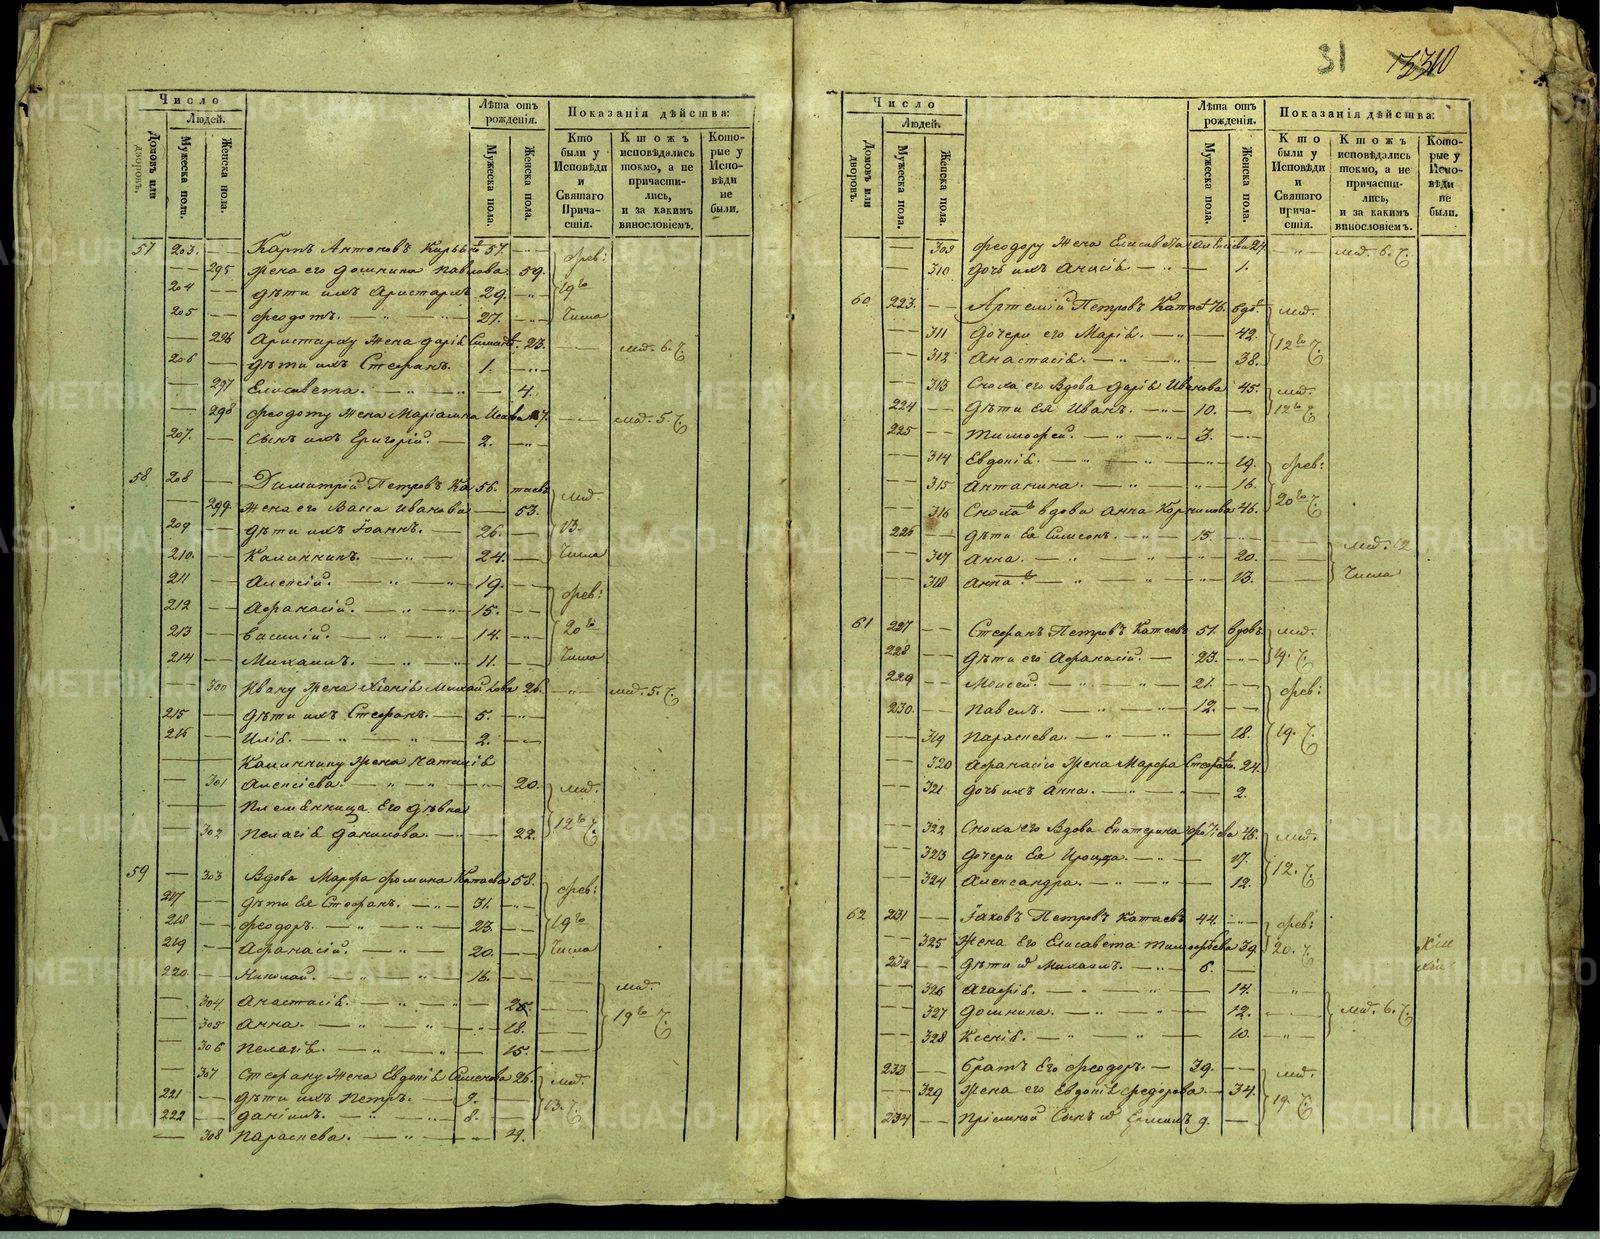 31 3310
Число
Людей.
Домовъ или дворовъ.
Мужеска пола.
Женска пола.
Лѣта отъ рожденія.
Мужеска пола.
Женска пола.
Показанія дѣйства:
Кто были у Исповѣди и Святаго Прича- стія.
Ктожъ исповѣдались токмо, а не причасти- лись, и за какимъ винословіемъ.
Кото- рые у Испо- вѣди не были.
57 203. Карпъ Антоновъ 57.
295 Жена его Домнина Павлова. 59. Фев:
204 Дѣти ихъ Аристархъ 29. 19го
205 Феодотъ. 27. Числа
296 Аристарху Жена Дарія 23. 6. Ч.
206 Дѣти ихъ Стефанъ. 1.
297 Елисавета. 4.
298 Феодоту Жена Маріамна 5. Ч.
207. Сынъ ихъ Григорій. 2.
58 208 Димитрій Петровъ Ка 56. таевъ
299. Жена его Васса Иванова 53.
209 Дѣти ихъ Іоаннъ. 26. 13.
210. Калинникъ. 24. Числа
211 Алексій. 19.
212 Афанасій. 15. Фев:
213 Василій. 14. 20го
214 Михаилъ. 11. Числа
300 Ивану Жена Хіонія Михайлова 26. 5. Ч.
215 Дѣти ихъ Стефанъ. 5.
216 Илія. 2.
Калиннику Жена Наталія
301 Алексіева. 20.
Племянница Его Дѣвка
302 Пелагія Данилова. 22. 12го Ч.
59 303 Вдова Марфа Фомина Катаева 58.
217 Дѣти Ея Стефанъ. 31. Фев:
218 Феодоръ. 23. 19го
219 Афанасій. 20. Числа
220 Николай. 16.
304 Анастасія.
305 Анна. 18. 19го Ч.
306 Пелагія. 15.
307 Стефану Жена Евдокія Семенова 26.
221 Дѣти ихъ Петръ. 9.
222 Даніилъ. 8. 13. Ч.
308 Параскева. 4.
Число
Людей.
Домовъ или дворовъ.
Мужеска пола.
Женска пола.
Лѣта отъ рожденія.
Мужеска пола.
Женска пола.
Показанія дѣйства:
Кто были у Исповѣди и Святаго прича- стія.
Ктожъ исповѣдались токмо, а не причасти- лись, и за какимъ винословіемъ.
Кото- рые у Испо- вѣди не были.
309 Феодору Жена Елисавета 24. 6. Ч.
310 Дочь ихъ 1.
60 223. Артемій Петровъ Катаев 76. вдов.
311 Дочери его Марія. 42.
312 Анастасія. 38. 12го Ч.
313 Сноха его Вдова Дарія Иванова 45.
224 Дѣти Ея Иванъ. 10. 12го Ч.
225 Тимофей. 3.
314 Евдокія. 19. Фев:
315 Антонина. 16. 20го Ч.
316 Сноха вдова Анна Корнилова 46.
226 Дѣти Ея Симеонъ. 15.
317 Анна. 20. 12
318 Анна 13. Числа
61 227 Стефанъ Петровъ Катаевъ 51. вдовъ.
228 Дѣти его Афанасій. 23. 19. Ч.
229 Моисей. 21. Фев:
230. Павелъ. 12.
319 Параскева. 18. 19. Ч.
320 Афанасію Жена Марфа 24.
321 Дочь ихъ Анна. 2.
322 Сноха его Вдова Екатерина 46.
323 Дочери Ея 17.
324 Александра. 12. 12. Ч.
62 231 Іаковъ Петровъ Катаевъ 44. Фев:
325 Жена Его Елисавета Тимофѣева 39. 20. Ч.
232 Дѣти Михаилъ. 6.
326 Агафія. 14.
327 Домнина. 12. 6. Ч.
328 Ксенія. 10.
233 Братъ Его Феодоръ. 39.
329 Жена его Евдокія Федорова. 34. 19 Ч.
234 Пріемной Сынъ 9.
METRIKI.GASO-URAL.RU